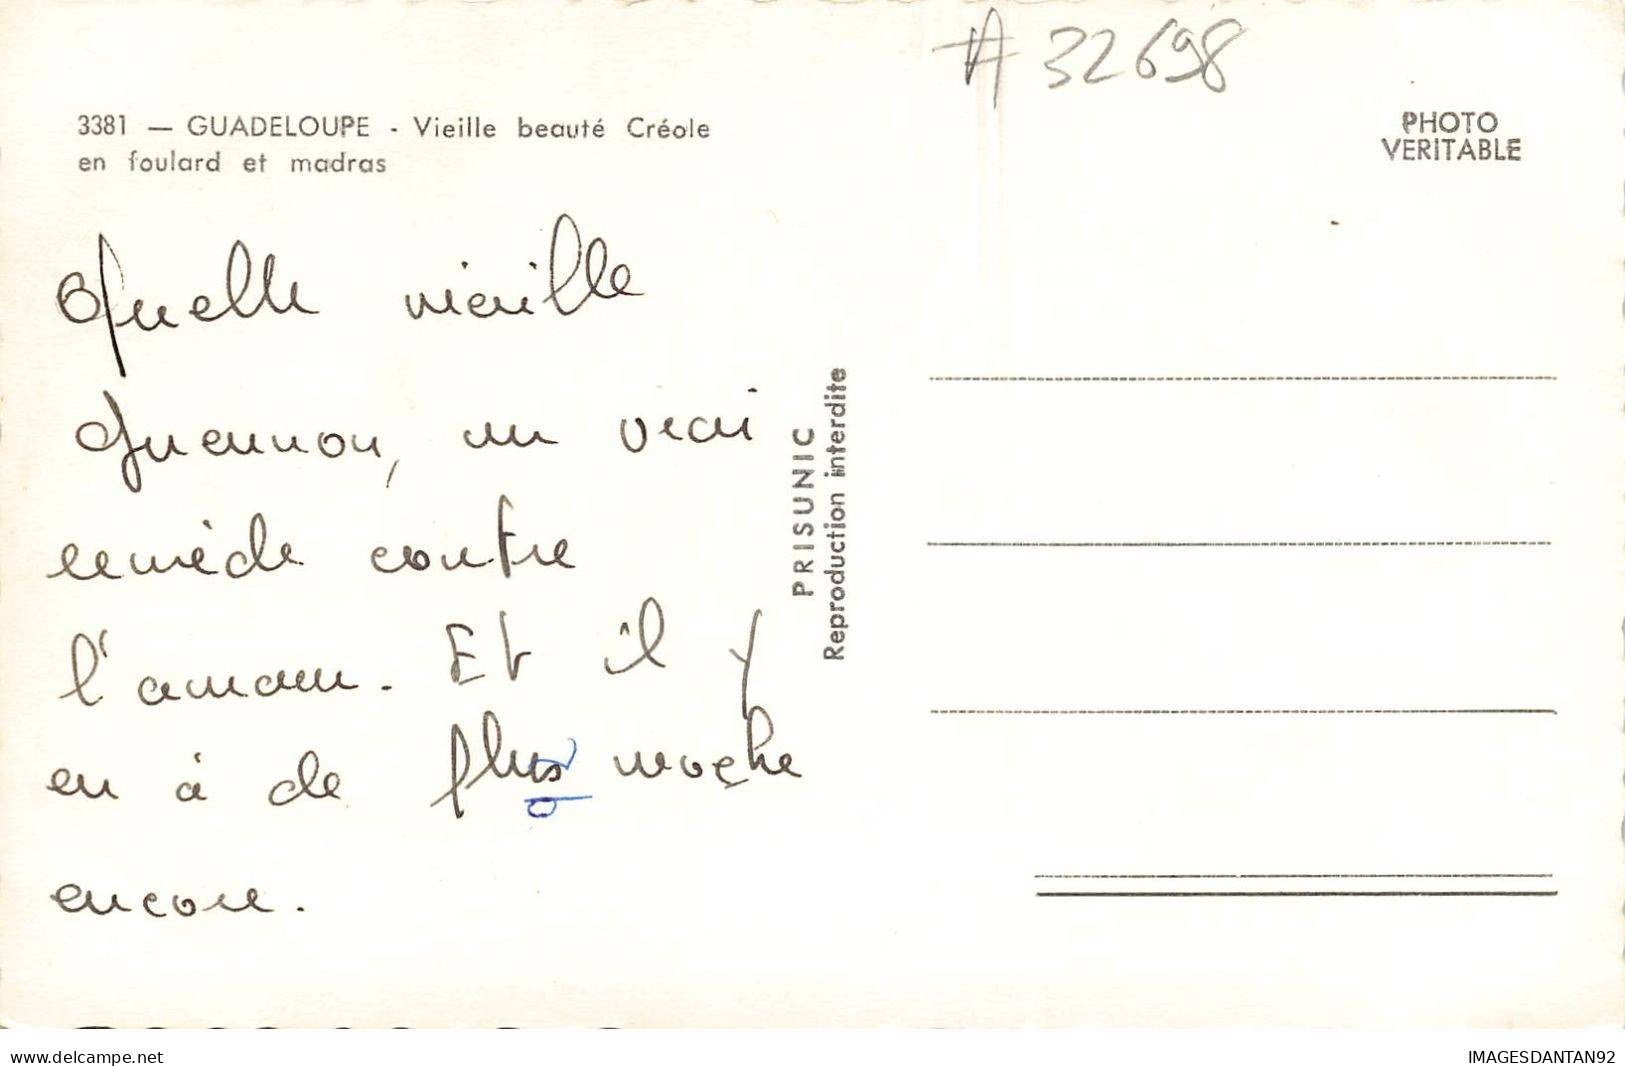 A 32698
3381 — GUADELOUPE - Vieille beauté Créole
en foulard et madras
PHOTO
VERITABLE
Quelle vieille
guennon, un vrai
remède contre
l'amour. Et il y
en à de plus moche
encore.
PRISUNIC
Reproduction interdite
www.delcampe.net
IMAGESDANTAN92